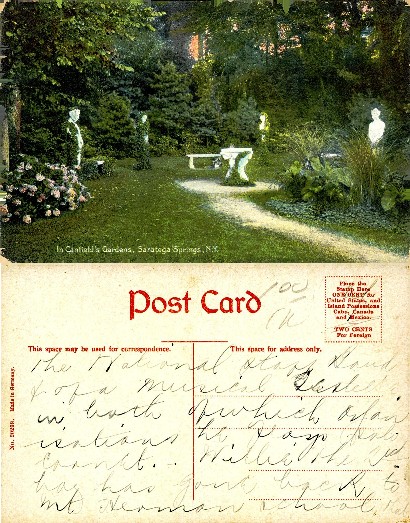 In Canfield's Gardens, Saratoga Springs, N.Y.
Post Card
100
Place the
Stamp Here
ONE CENT for
United States, and
Island Possessions
Cuba, Canada
and Mexico.
TWO CENTS
For Foreign
This space may be used for correspondence.
This space for address only.
No. 50299. Made in Germany.
The National
of a Musical
in both of which organ
isations he plays solo
cornet. Willie the 2nd
boy has gone back to
Mt. Hermon School,